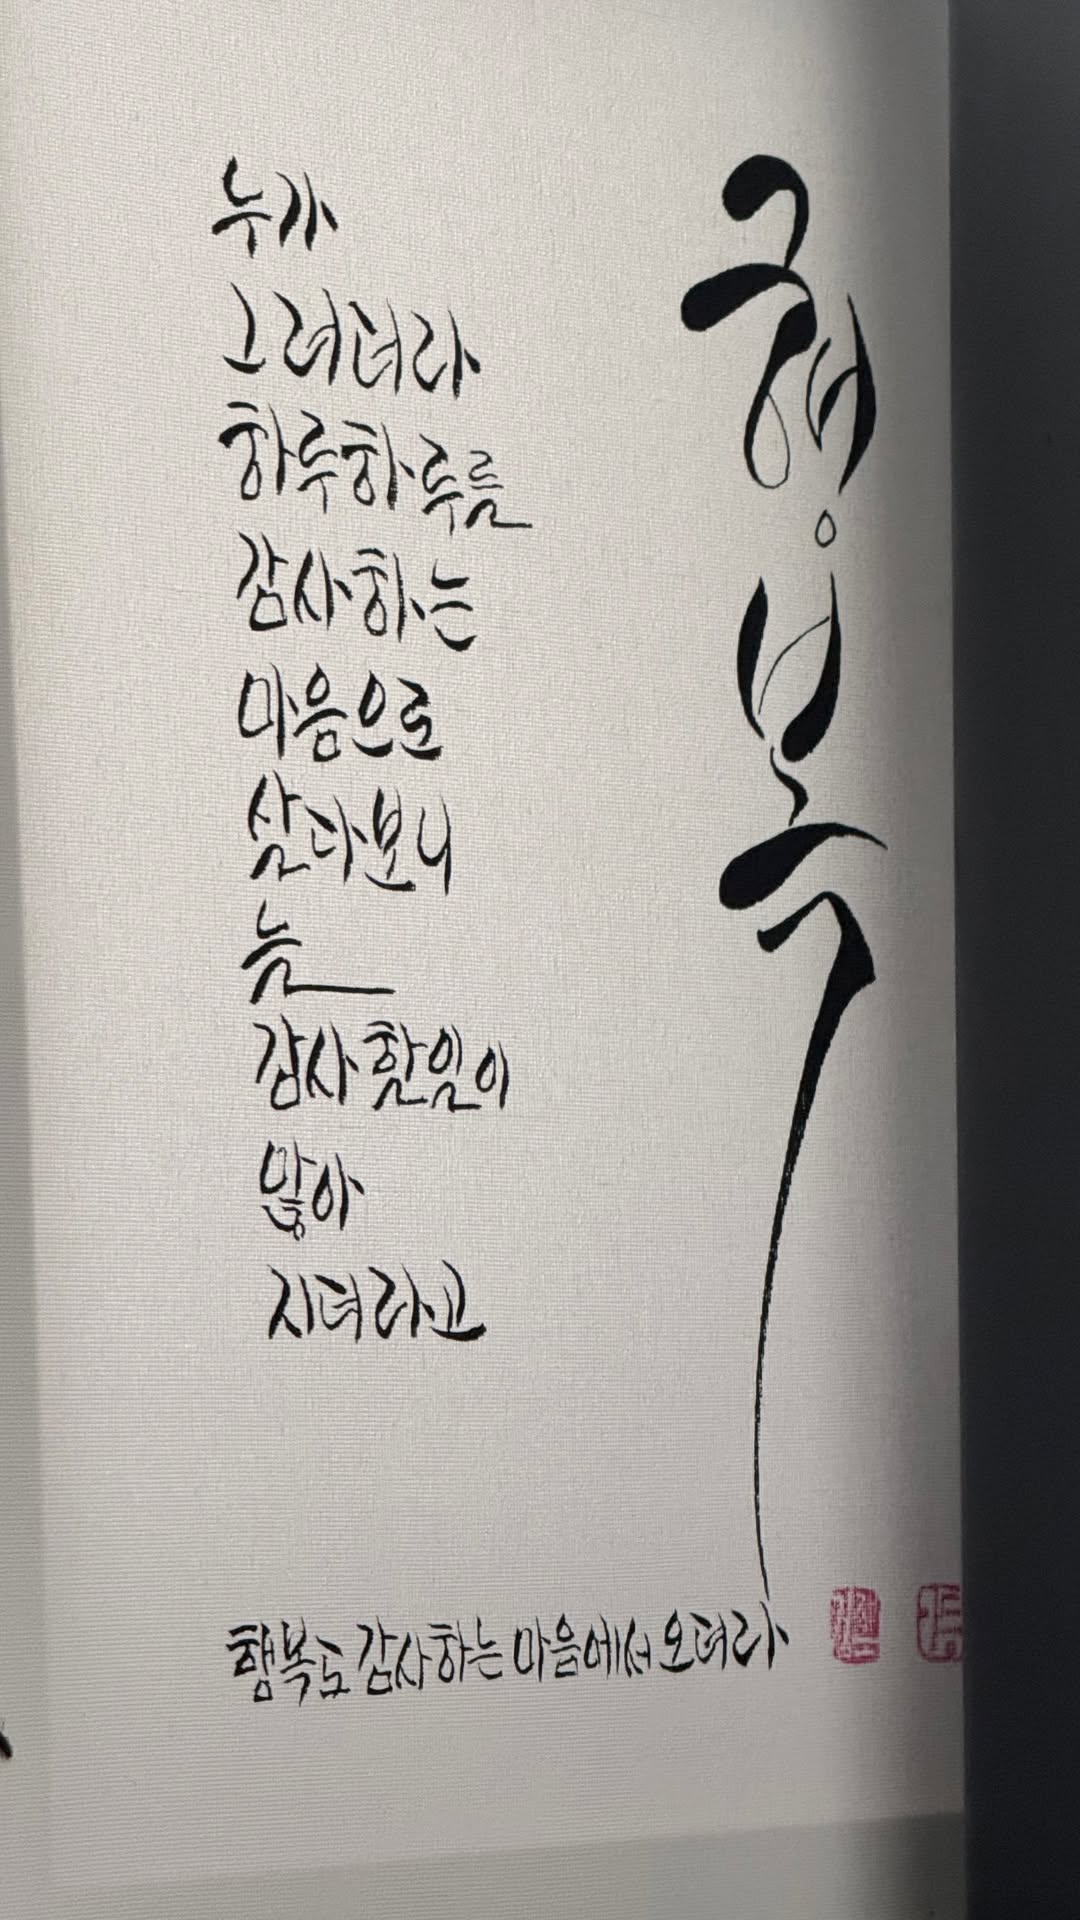 행복
누가
그러더라
하루하루를
감사하는
마음으로
살다보니
늘
감사할일이
많아
지더라고
행복도 감사하는 마음에서 오더라